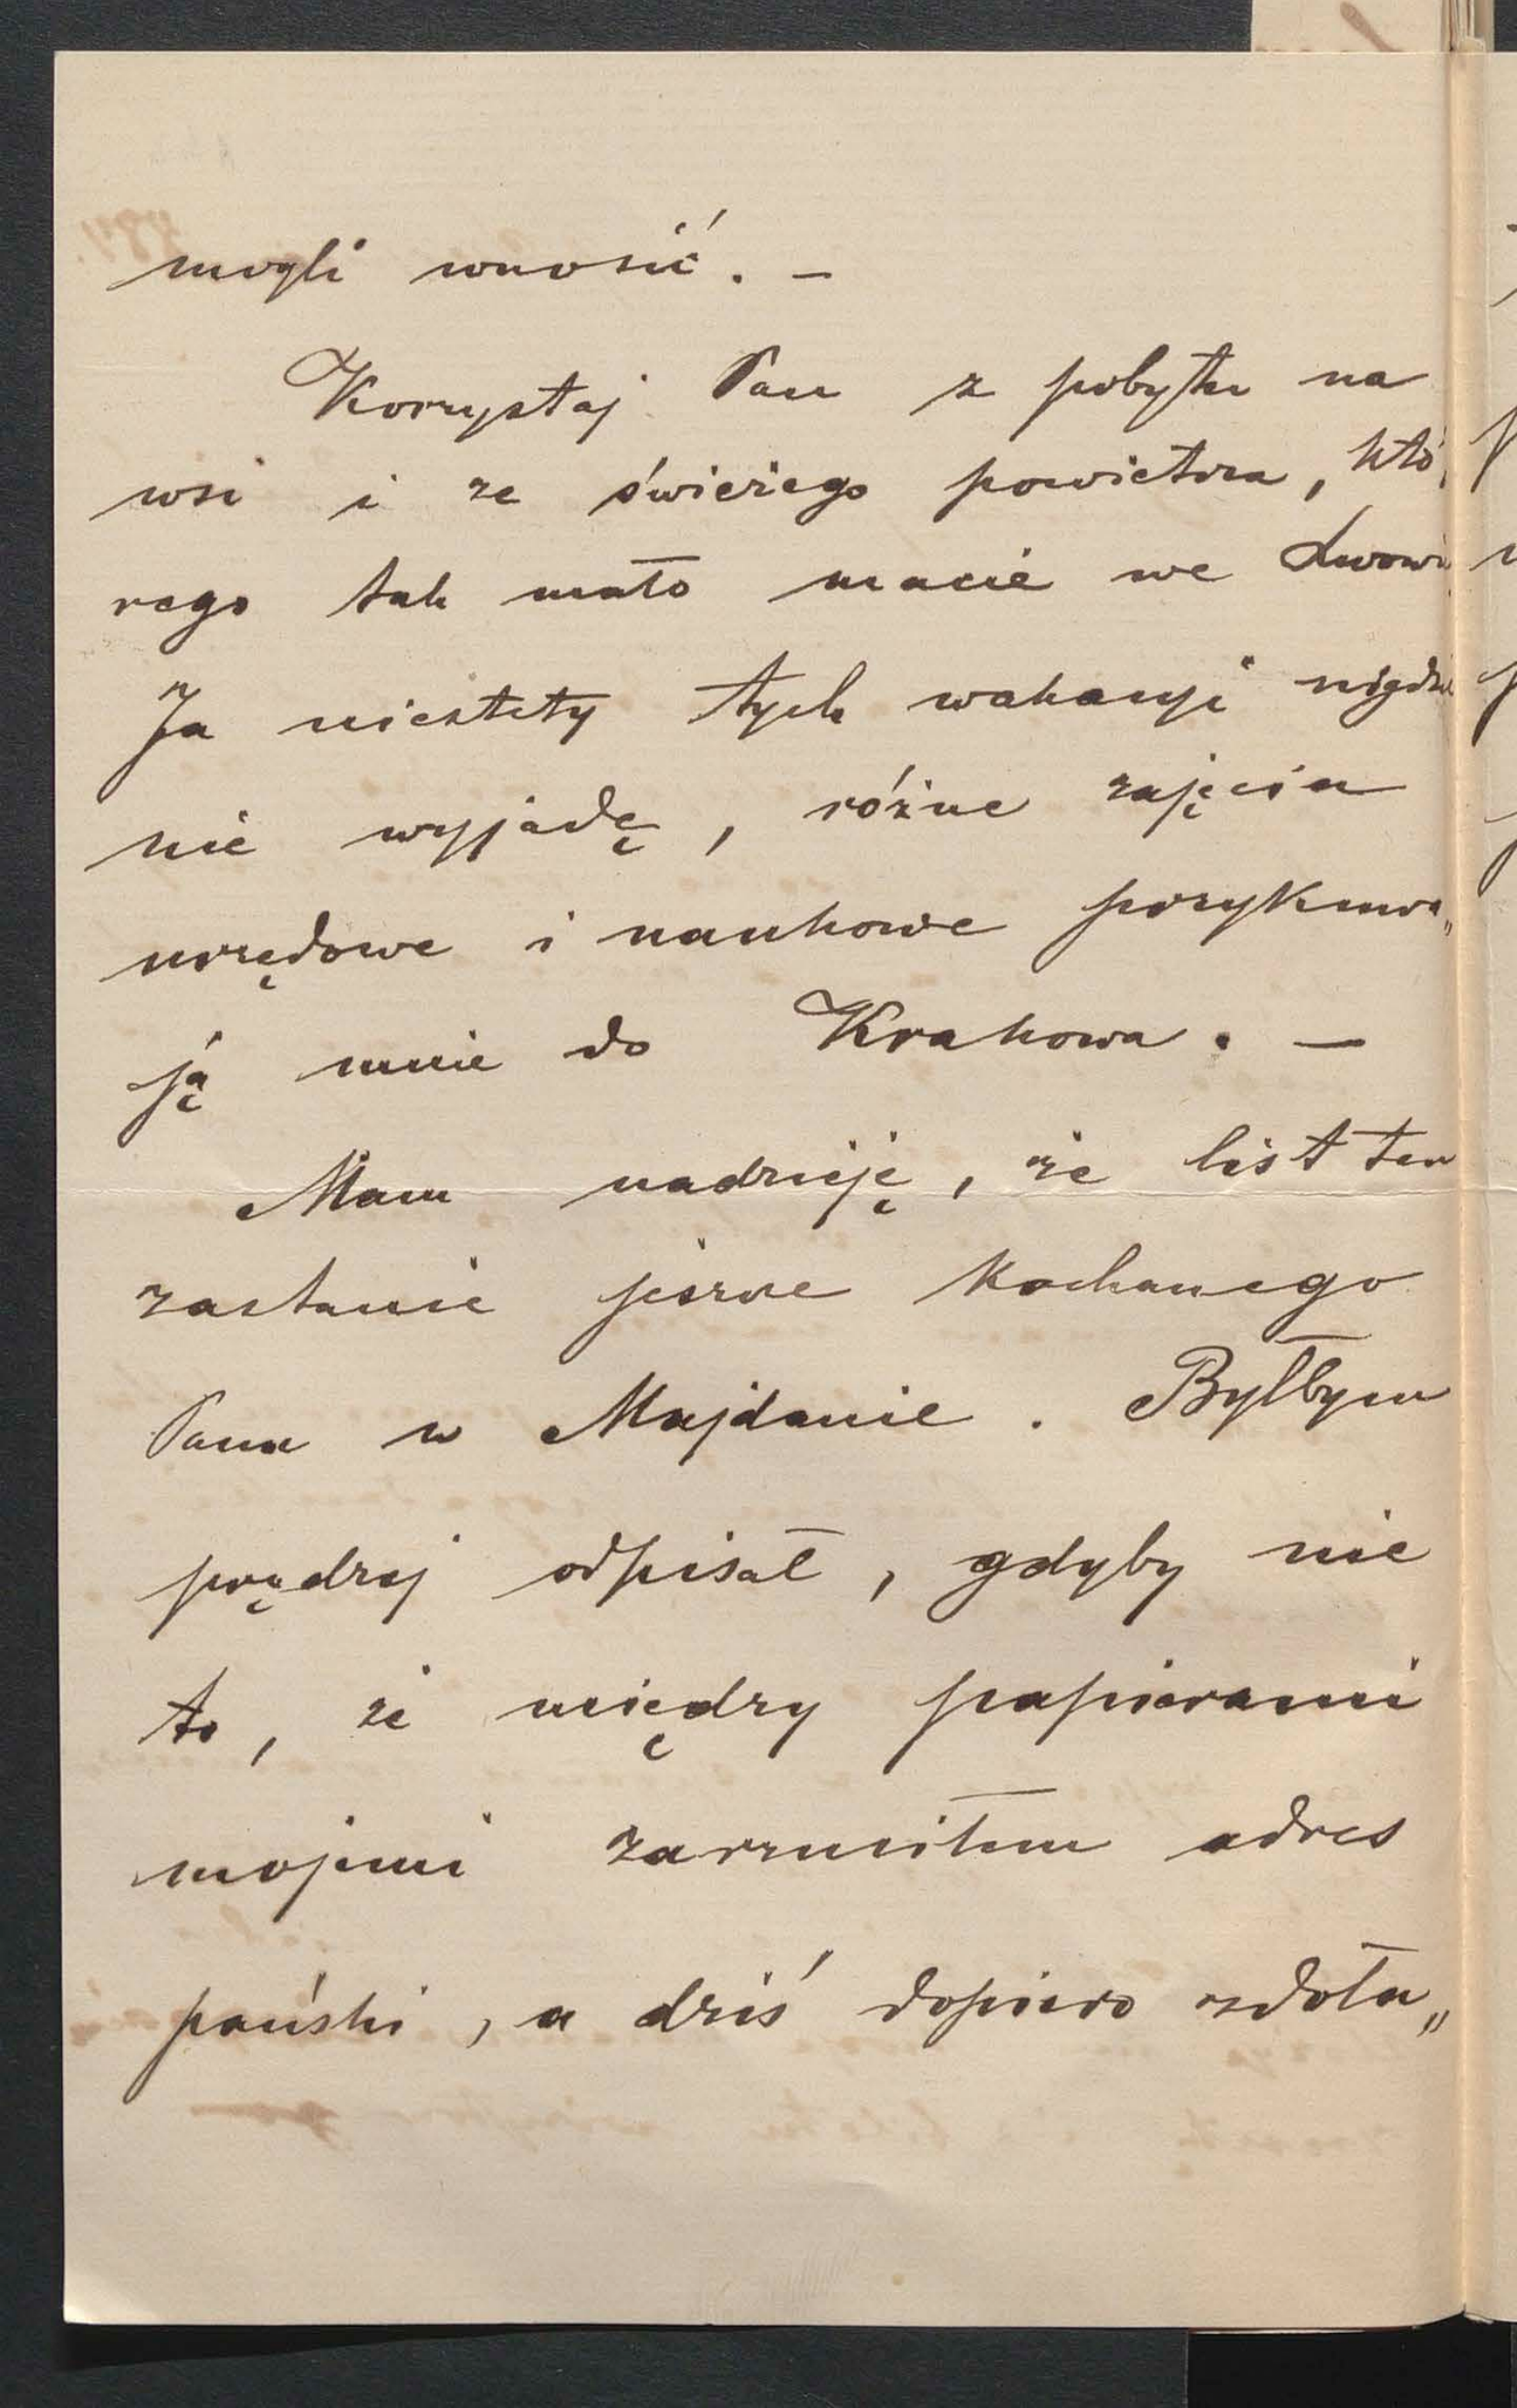 mogli wnosić. –
Korzystaj Pan z pobytu na
wsi i ze świeżego powietrza, któ„
rego tak mało macie we Lwowie
Ja niestety tych wakacyi nigdzie
nie wyjadę, różne zajęcia
urzędowe i naukowe przykuwa„
ją mnie do Krakowa. –
Mam nadzieję, że list ten
zastanie jeszcze kochanego
Pana w Majdanie. Byłbym
prędzej odpisał, gdyby nie
to, że między papierami
mojemi zarzuciłem adres
pański, a dziś dopiero zdoła„